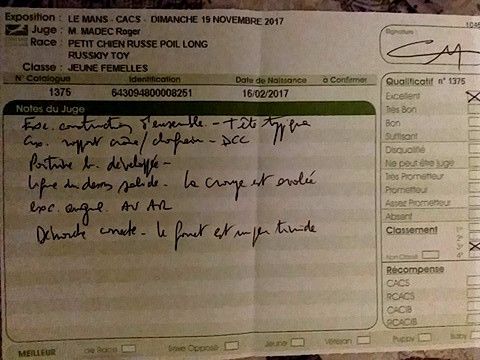 Exposition : LE MANS - CACS - DIMANCHE 19 NOVEMBRE 2017
Juge : M. MADEC Roger
Race : PETIT CHIEN RUSSE POIL LONG
RUSSKIY TOY
Classe : JEUNE FEMELLES
N° Catalogue Identification Date de Naissance à Confirmer
1375 643094800008251 16/02/2017
Notes du Juge
Exc. construction d'ensemble - Tête typique
exc. rapport crâne / chanfrein - DCC
Poitrine b. développée -
ligne du dessus solide - la croupe est avalée
exc. angul. AV AR
Démarche correcte - le fouet est un peu timide
MEILLEUR de Race Sexe Opposé Jeune Vétéran Puppy Baby
Signature :
Qualificatif n° 1375
Excellent
Très Bon
Bon
Suffisant
Disqualifié
Ne peut être jugé
Très Prometteur
Prometteur
Assez Prometteur
Absent
Classement
Non Classé
Récompense
CACS
RCACS
CACIB
RCACIB